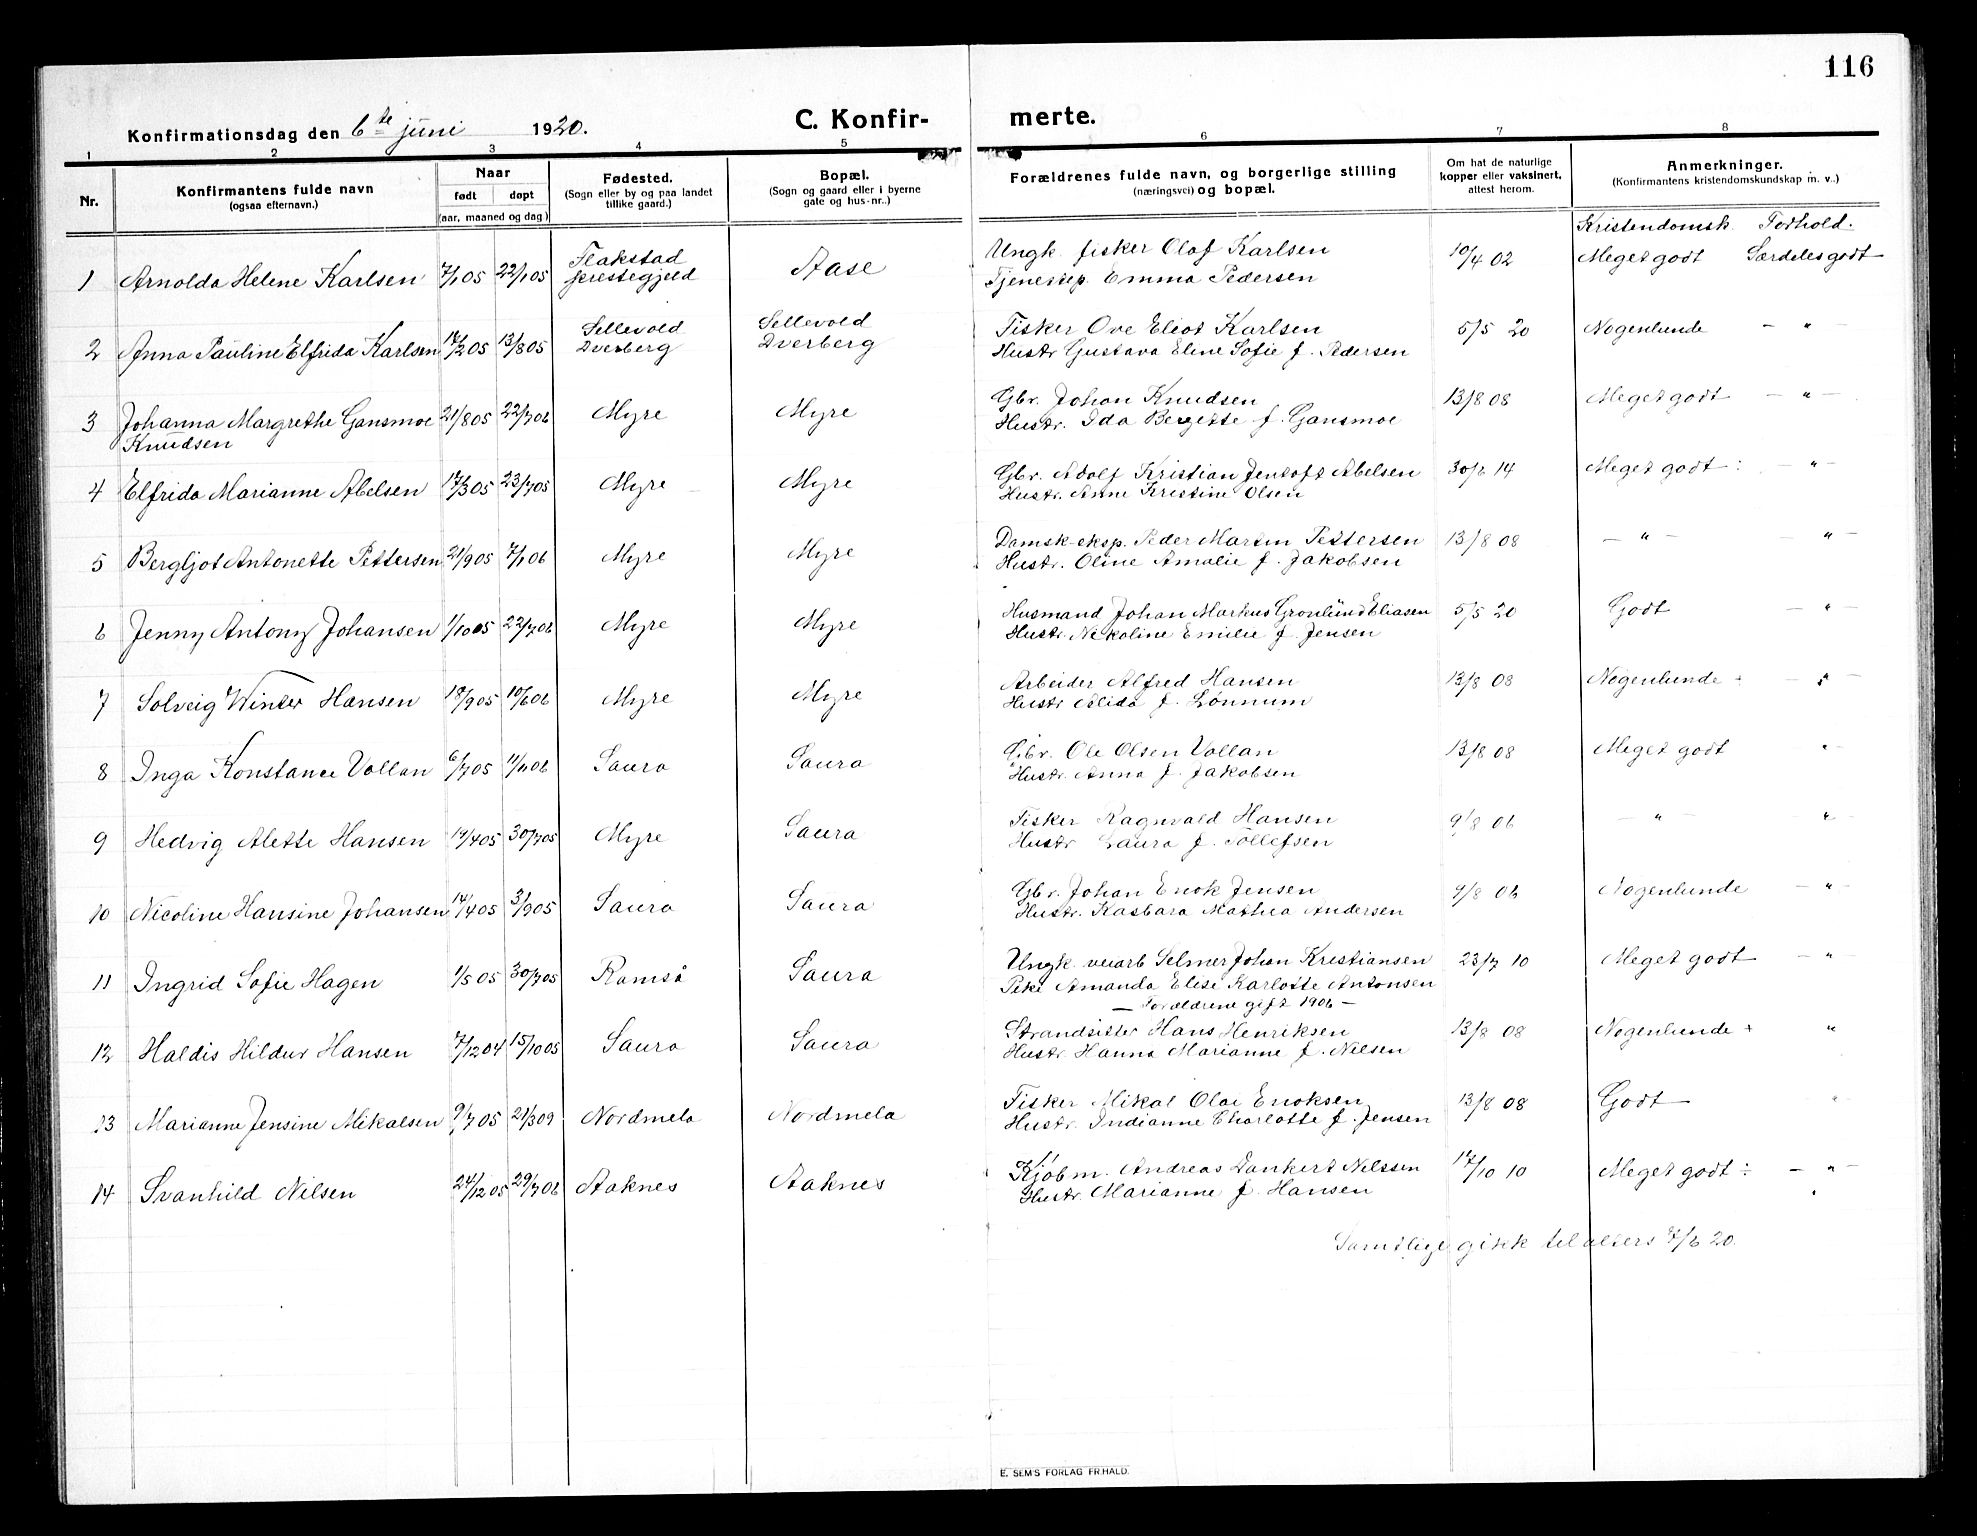 116
Konfirmationsdag den 6te juni 1920. C. Konfirmerte.
1 2 3 4 5 6 7 8
Nr. Konfirmantens fulde navn (ogsaa efternavn.) Naar født døpt (aar, maaned og dag) Fødested. (Sogn eller by og paa landet tillike gaard.) Bopæl. (Sogn og gaard eller i byerne gate og hus-nr..) Forældrenes fulde navn, og borgerlige stilling (næringsvei) og bopæl. Om hat de naturlige kopper eller vaksinert, attest herom. Anmerkninger. (Konfirmantens kristendomskundskap m. v..)
Kristendomsk. Forhold.
1 Arnolda Helene Karlsen 7/1 05 22/1 05 Flakstad prestegjeld Aase Ungk. fisker Olaf Karlsen 10/4 02 Meget godt Særdeles godt
Tjenestep. Emma Pedersen
2 Anna Pauline Elfrida Karlsen 17/2 05 13/8 05 Sellevold Dverberg Sellevold Dverberg Fisker Ove Eliot Karlsen 5/5 20 Nogenlunde – " –
Hustr Gustava Eline Sofie f. Pedersen
3 Johanna Margrethe Gansmoe 21/8 05 22/7 06 Myre Myre Gbr. Johan Knudsen 13/8 08 Meget godt – " –
Knudsen Hustr. Ida Bergette f. Gansmoe
4 Elfrida Marianne Abelsen 17/3 05 23/7 05 Myre Myre Gbr. Adolf Kristian Jentoft Abelsen 30/6 14 Meget godt ÷ – " –
Hustr. Anne Kristine Olsen
5 Bergljot Antonette Pettersen 21/9 05 7/1 06 Myre Myre Damsk.eksp. Peder Martin Pettersen 13/8 08 – " – – " –
Hustr. Oline Amalie f. Jakobsen
6 Jenny Antony Johansen 1/10 05 22/7 06 Myre Myre Husmand Johan Markus Gronlund Eliasen 5/5 20 Godt – " –
Hustr. Nekoline Emilie f. Jensen
7 Solveig Winter Hansen 18/9 05 10/6 06 Myre Myre Arbeider Alfred Hansen 13/8 08 Nogenlunde + – " –
Hustr Alida f. Lønnum
8 Inga Konstance Vollan 6/7 05 11/11 06 Saura Saura Gbr. Ole Olsen Vollan 13/8 08 Meget godt "
Hustr. Anna f. Jakobsen
9 Hedvig Alette Hansen 14/4 05 30/7 05 Myre Saura Fisker Ragnvald Hansen 9/8 06 – " – "
Hustr Laura f. Tollefsen
10 Nicoline Hansine Johansen 14/4 05 3/9 05 Saura Saura Gbr. Johan Enok Jensen 9/8 06 Nogenlunde – " –
Hustr. Kasbara Mathea Andersen
11 Ingrid Sofie Hagen 1/5 05 30/7 05 Ramså Saura Ungk. veiarb Selmer Johan Kristiansen 23/7 10 Meget godt – " –
Pike Amanda Elise Karlotte Antonsen
– Forældrene gift 1906 –
12 Haldis Hildur Hansen 7/12 04 15/10 05 Saura Saura Strandsitter Hans Henriksen 13/8 08 Nogenlunde + "
Hustr. Hanna Marianne f. Nilsen
13 Marianne Jensine Mikalsen 9/7 05 21/3 09 Nordmela Nordmela Fisker Mikal Olai Enoksen 13/8 08 Godt "
Hustr. Indianne Charlotte f. Jensen
14 Svanhild Nilsen 24/12 05 29/7 06 Aaknes Aaknes Kjøbm. Andreas Dankert Nilssen 17/10 10 Meget godt ÷ – " –
Hustr. Marianne f. Hansen
Samtlige gikk til alters 7/6 20.
E. SEM'S FORLAG FR.HALD.